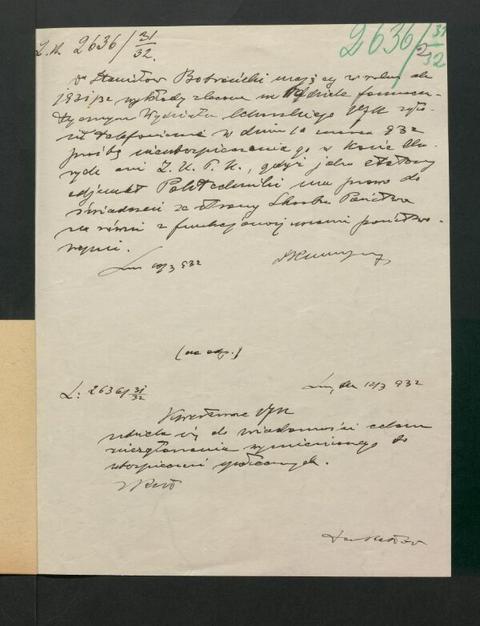 L. U. 2636/31/32.
2636/31/32
Dr Stanisław mający w roku ak.
1931/32 wykłady zlecone na Oddziale farmaceu-
tycznym Wydziału Lekarskiego UJK
telefonicznie w dniu 10 marca 932
prośbę w Kasie Cho-
rych ani Z. U. P. U., gdyż jako etatowy
adjunkt Politechniki ma prawo do
świadczeń ze strony Skarbu Państwa
na równi z funkcjonarjuszami państwo-
wymi.
Lwów 10/3 932
(na odp.)
L: 2636/31/32
Lwów, dn 10/3 932
Kwesturze UJK
udziela się do wiadomości celem
niezgłaszania wymienionego do
ubezpieczeń społecznych.